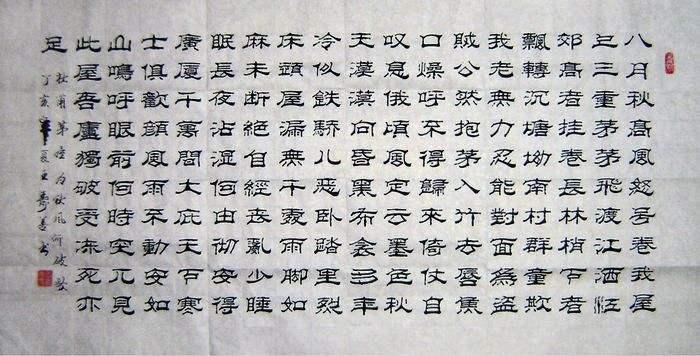 八月秋高風怒号卷我屋
上三重茅茅飛渡江洒江
郊高者挂卷長林梢下者
飄轉沉塘坳南村群童欺
我老無力忍能對面為盜
賊公然抱茅入竹去唇焦
口燥呼不得歸來倚仗自
叹息俄頃風定云墨色秋
天漠漠向昏黑布衾多年
冷似鉄驕儿惡卧踏里裂
床頭屋漏無干處雨脚如
麻未断絶自經丧亂少睡
眠長夜沾湿何由彻安得
廣厦千萬間大庇天下寒
士俱歡顔風雨不動安如
山鳴呼眼前何時突兀見
此屋吾廬獨破受冻死亦
足
杜甫茅屋为秋风所破歌
丁亥年夏王善书